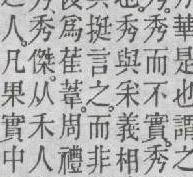 華是也謂之
秀而不實秀
秀與采義相
挺言之。而非
為萑葦周禮
秀傑。从禾人
人。凡果實中